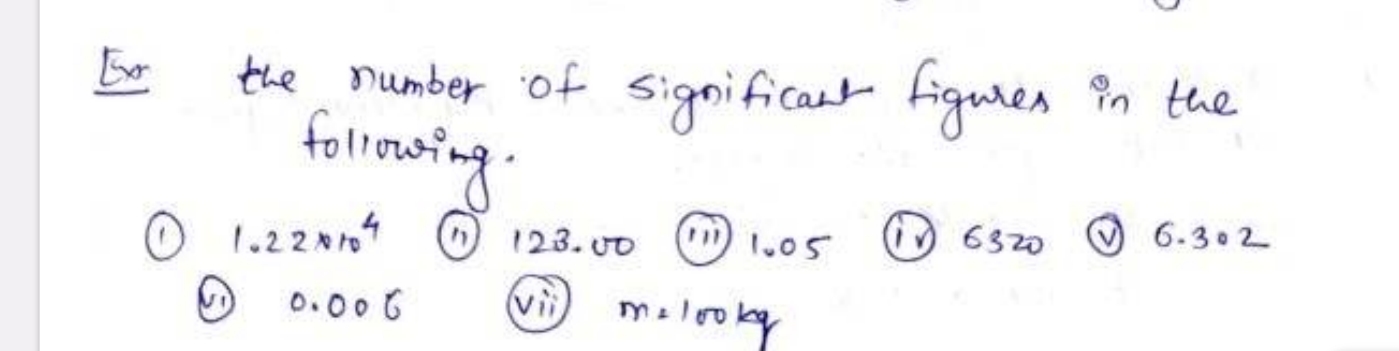 Ex the number of significant figures in the
following.
(i) 1.22×10⁴ (ii) 123.00 (iii) 1.05 (iv) 6320 (v) 6.302
(vi) 0.006 (vii) m=100kg